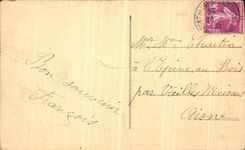 Bon souvenir
François
Mr Mme
à l'Epine au Bois
par Vieilles Maisons
Aisne